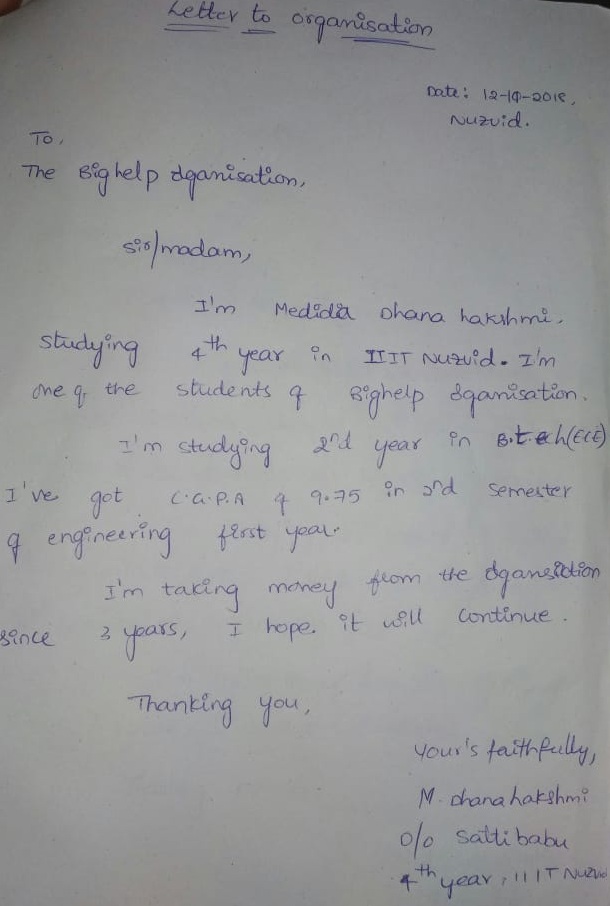 Letter to organisation
Date: 12-10-2018,
Nuzvid.
To,
The Bighelp organisation,
Sir/madam,
I'm Medidia Dhana Lakshmi.
studying 4th year in IIIT Nuzvid. I'm
one of the students of Bighelp organisation.
I'm studying 2nd year in B.tech(ECE)
I've got C.G.P.A of 9.75 in 2nd semester
of engineering first year.
I'm taking money from the organisation
since 3 years, I hope. it will continue.
Thanking you,
Your's faithfully,
M. Dhana Lakshmi
D/o Sattibabu
4th year, IIIT Nuzvid